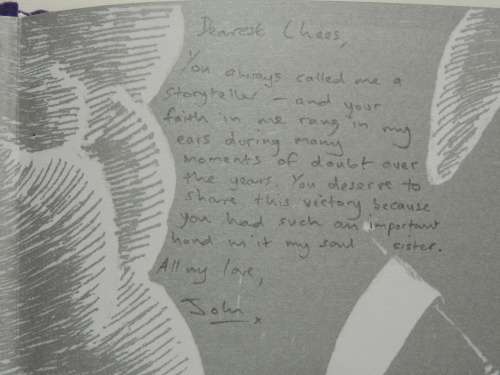 Dearest Chaos,
You always called me a
storyteller – and your
faith in me rang in my
ears during many
moments of doubt over
the years. You deserve to
share this victory because
you had such an important
hand in it my soul sister.
All my love,
John x